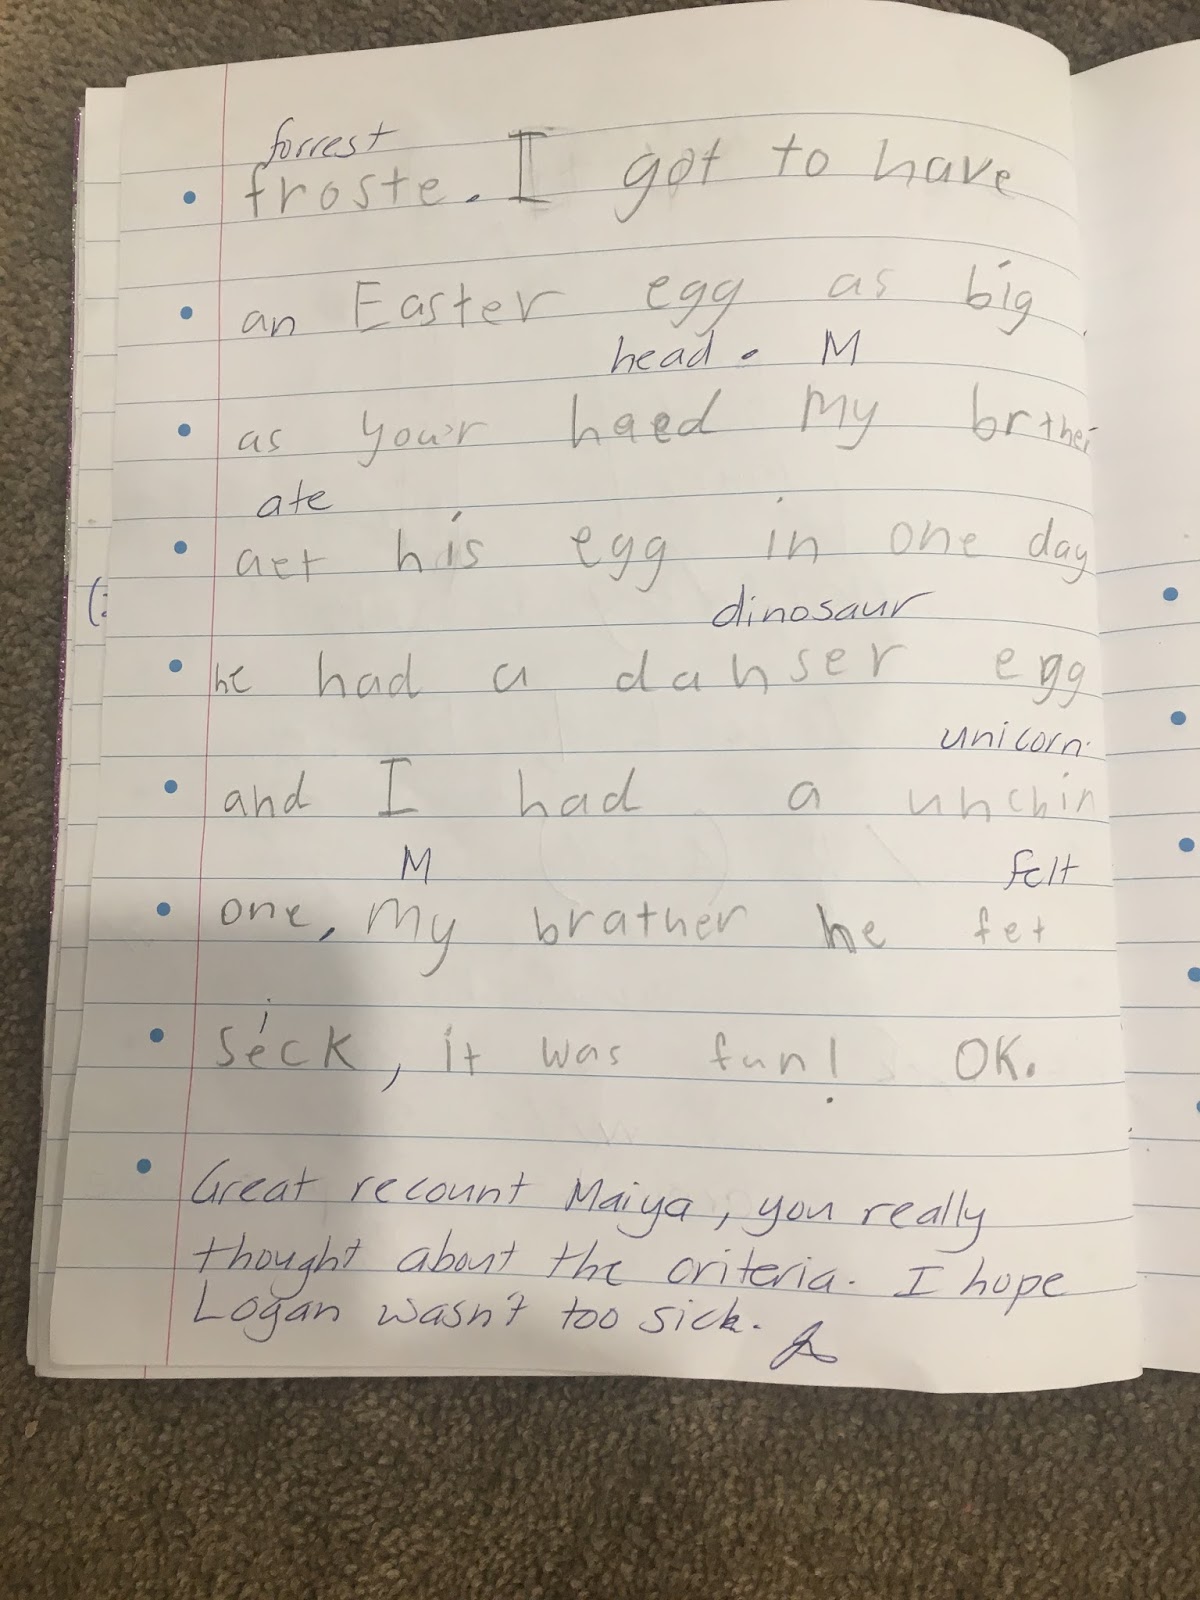 forrest
froste. I got to have
an Easter egg as big
head. M
as your haed My brther
ate
aet his egg in one day
dinosaur
he had a danser egg
unicorn.
and I had a unchin
M felt
one, My brather he fet
i
seck, it was fun! OK.
Great recount Maiya, you really
thought about the criteria. I hope
Logan wasn't too sick.